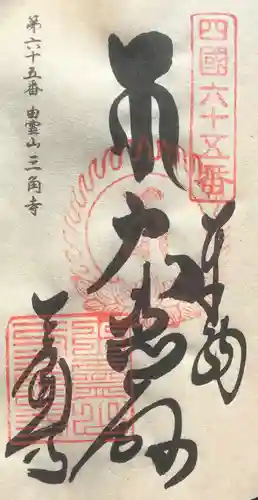 四國六十五番
奉納
大悲殿
三角寺
第六十五番 由霊山 三角寺